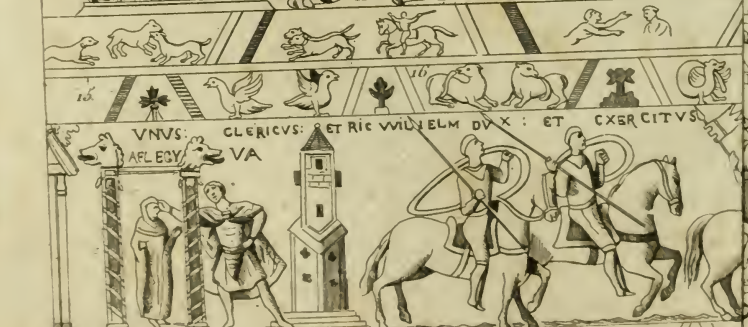 15. 16
VNVS: CLERICVS: ET RIC WILIELM DVX : ET CXERCITVS
AELEGY VA